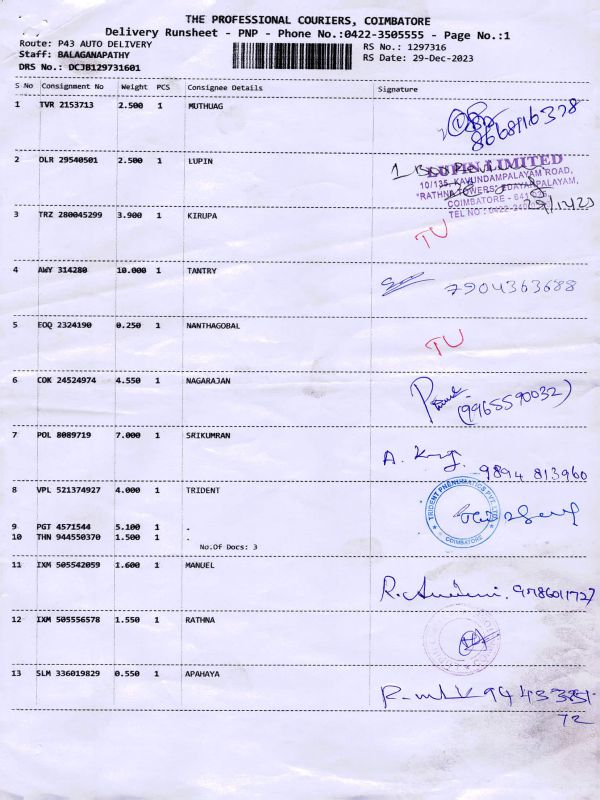 THE PROFESSIONAL COURIERS, COIMBATORE
Delivery Runsheet - PNP - Phone No.:0422-3505555 - Page No.:1
Route: P43 AUTO DELIVERY RS No.: 1297316
Staff: BALAGANAPATHY RS Date: 29-Dec-2023
DRS No.: DCJB129731601
S No Consignment No Weight PCS Consignee Details Signature
1 TVR 2153713 2.500 1 MUTHUAG
8668916378
2 DLR 29540501 2.500 1 LUPIN
LUPIN LIMITED
10/135, KAVUNDAMPALAYAM ROAD,
"RATHNA TOWERS" EDAYARPALAYAM,
COIMBATORE - 641
TEL NO : 0422
3 TRZ 280045299 3.900 1 KIRUPA
TU
4 AWY 314280 10.000 1 TANTRY
7904363688
5 EOQ 2324190 0.250 1 NANTHAGOBAL
TU
6 COK 24524974 4.550 1 NAGARAJAN
(9965590032)
7 POL 8089719 7.000 1 SRIKUMRAN
9894 813960
8 VPL 521374927 4.000 1 TRIDENT
TRIDENT PNEUMATICS PVT. LTD
COIMBATORE
9 PGT 4571544 5.100 1 .
10 THN 944550370 1.500 1 .
No.Of Docs: 3
11 IXM 505542059 1.600 1 MANUEL
12 IXM 505556578 1.550 1 RATHNA
13 SLM 336019829 0.550 1 APAHAYA
72